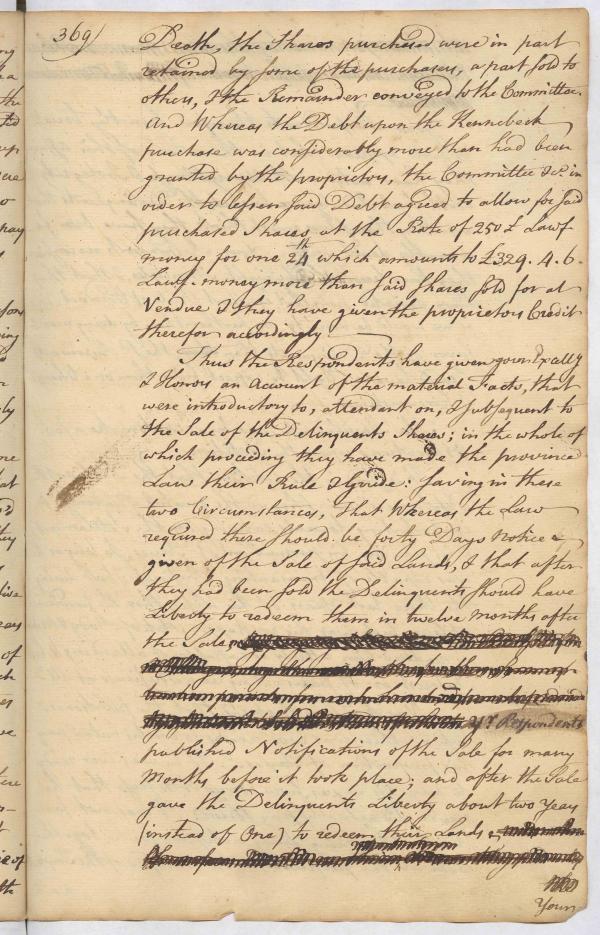 369
Death, the Shares purchased were in part
retained by some of the purchasers, a part sold to
others, & the Remainder conveyed to the Committee.
And Whereas the Debt upon the Kennebeck
purchase was considerably more than had been
granted by the proprietors, the Committee &c. in
order to lessen said Debt agreed to allow for said
purchased Shares at the Rate of 250£ Lawf.
money for one 24th which amounts to £329. 4. 6.
Lawf. money more than said Shares sold for at
Vendue & they have given the proprietors Credit
therefor accordingly
Thus the Respondents have given your Excell'y
& Honors an account of the material Facts, that
were introductory to, attendant on, & subsequent to
the Sale of the Delinquents Shares; in the whole of
which proceeding they have made the province
Law their Rule & Guide: saving in these
two Circumstances, That Whereas the Law
required there should be forty Days notice
given of the Sale of said Lands, & that after
they had been sold the Delinquents should have
Liberty to redeem them in twelve months after
the Sale
yr. Respondents
published Notifications of the Sale for many
Months before it took place; and after the Sale
gave the Delinquents Liberty about two Years
(instead of One) to redeem their Lands
Your